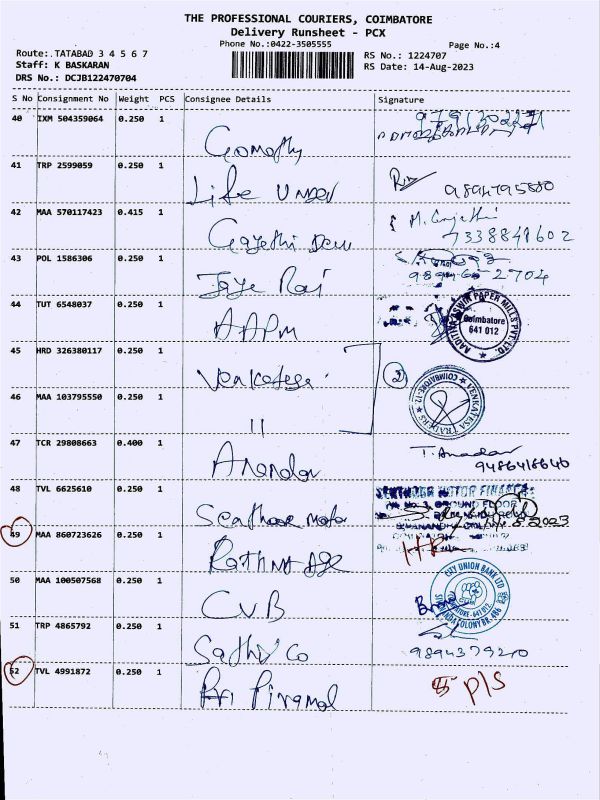 THE PROFESSIONAL COURIERS, COIMBATORE
Delivery Runsheet - PCX
Phone No.:0422-3505555
Page No.:4
Route:.TATABAD 3 4 5 6 7
Staff: K BASKARAN
DRS No.: DCJB122470704
RS No.: 1224707
RS Date: 14-Aug-2023
S No Consignment No Weight PCS Consignee Details Signature
40 IXM 504359064 0.250 1 Gomathy
41 TRP 2599059 0.250 1 Life Under 9894795880
42 MAA 570117423 0.415 1 Gayethi Devi M. Gayethi
7338849602
43 POL 1586306 0.250 1 Jaye Raj
44 TUT 6548037 0.250 1 AAPM
AADITYA ASWIN PAPER MILLS PVT. LTD
Coimbatore
641 012
45 HRD 326380117 0.250 1 Venkatesa
2
VENKATESA TRADERS
COIMBATORE-12
46 MAA 103795550 0.250 1 11
47 TCR 29808663 0.400 1 Anandan T. Anandan
9486418640
48 TVL 6625610 0.250 1 Motor
MOTOR FINANCE
GROUND FLOOR
49 MAA 860723626 0.250 1 Rathna
50 MAA 100507568 0.250 1 CUB
CITY UNION BANK LTD
51 TRP 4865792 0.250 1 Sathi Co 9894379210
52 TVL 4991872 0.250 1 Piramal P/S